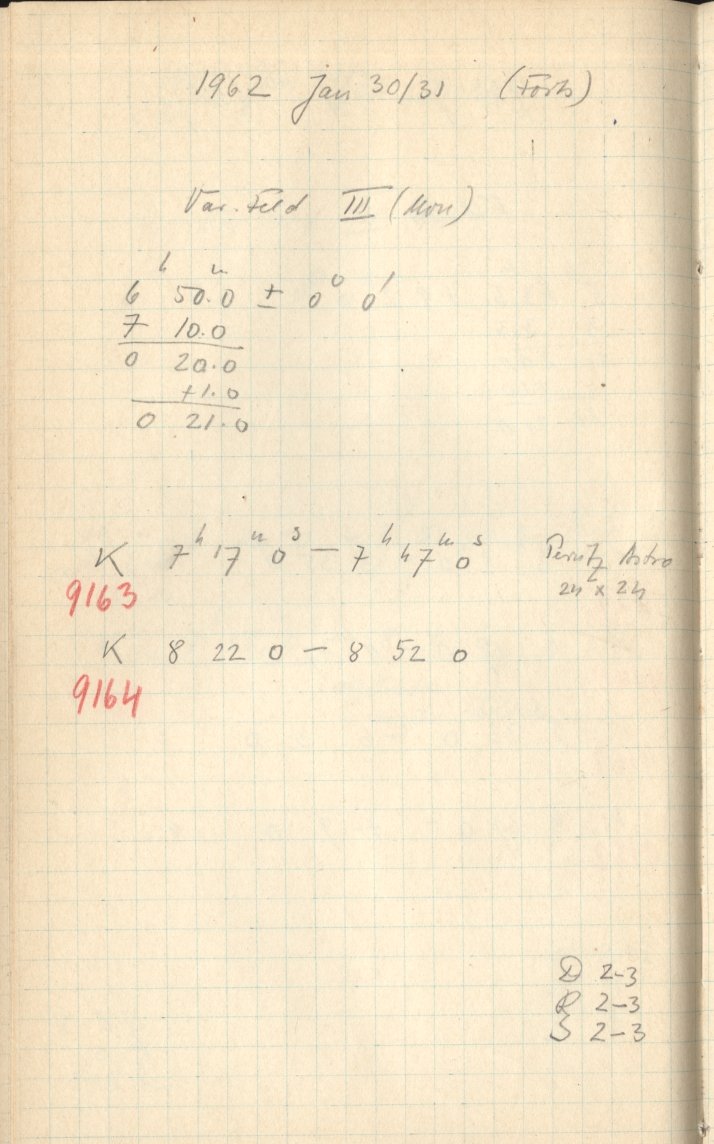 1962 Jan 30/31 (Forts)
Var. Feld III (Mon)
6ʰ 50.0ᵐ ± 0° 0'
7 10.0
0 20.0
+1.0
0 21.0
K 7ʰ 17ᵐ 0ˢ – 7ʰ 47ᵐ 0ˢ Perutz Astro
9163 24 x 24
K 8 22 0 – 8 52 0
9164
D 2-3
R 2-3
S 2-3